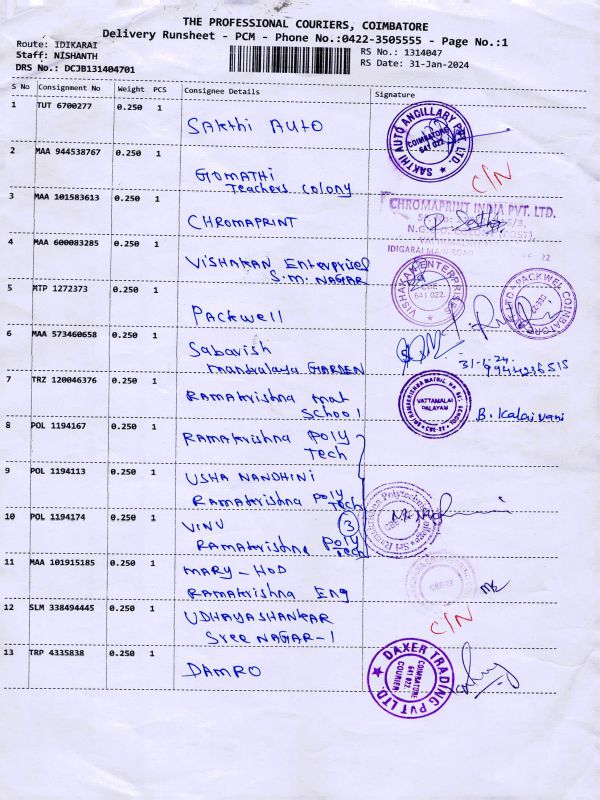 THE PROFESSIONAL COURIERS, COIMBATORE
Delivery Runsheet - PCM - Phone No.:0422-3505555 - Page No.:1
Route: IDIKARAI
Staff: NISHANTH
DRS No.: DCJB131404701
RS No.: 1314047
RS Date: 31-Jan-2024
S No Consignment No Weight PCS Consignee Details Signature
1 TUT 6700277 0.250 1 Sakthi AUTO
SAKTHI AUTO ANCILLARY PVT. LTD. COIMBATORE 641 022.
2 MAA 944538767 0.250 1 GOMATHI
Teachers colony
C/N
3 MAA 101583613 0.250 1 CHROMAPRINT
CHROMAPRINT INDIA PVT. LTD.
IDIGARAI MAIN ROAD
4 MAA 600083285 0.250 1 VISHAKAN Enterprises
S.M. NAGAR
VISHAKAN ENTERPRISES CBE 641 022.
5 MTP 1272373 0.250 1 PACKWEll
PACKWEL COIMBATORE
6 MAA 573460658 0.250 1 Sabavish
mandralaya GARDEN
31-1-24
9944236515
7 TRZ 120046376 0.250 1 RAMAkrishna mat
School
VATTAMALAI PALAYAM
B. Kalaivani
8 POL 1194167 0.250 1 RAMAkrishna Poly
Tech
9 POL 1194113 0.250 1 USHA NANDHINI
Ramakrishna Poly Tech
10 POL 1194174 0.250 1 VINU 3
Ramakrishna Poly Tech
11 MAA 101915185 0.250 1 MARY - HOD
Ramakrishna Eng
12 SLM 338494445 0.250 1 UDHAYASHANKAR
Sree NAGAR-1
C/N
13 TRP 4335838 0.250 1 DAMRO
DAXER TRADING PVT LTD. COIMBATORE 641 022. COURIER